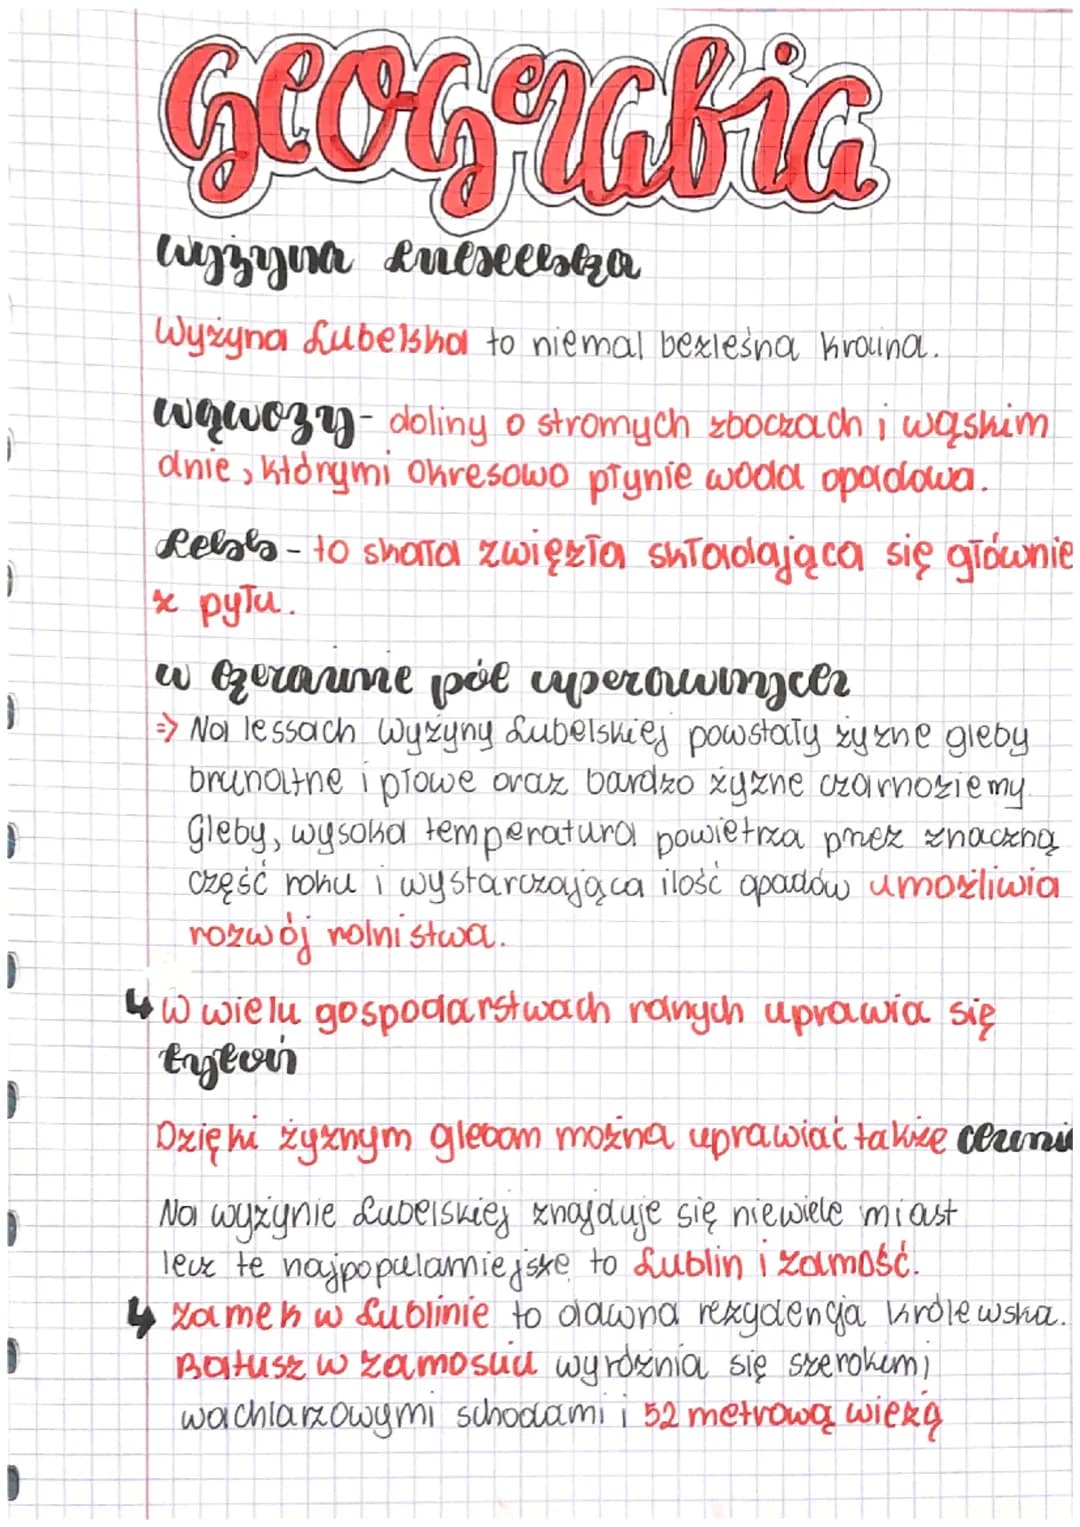 Geografia
Wyżyna Lubelska
Wyżyna Lubelska to niemal bezleśna kraina.
wąwozy - doliny o stromych zboczach i wąskim
dnie, którymi okresowo płynie woda opadowa.
Less - to skała zwięzła składająca się głównie
z pyłu.
w krainie pól uprawnych
=> Na lessach Wyżyny Lubelskiej powstały żyzne gleby
brunatne i płowe oraz bardzo żyzne czarnoziemy.
Gleby, wysoka temperatura powietrza przez znaczną
część roku i wystarczająca ilość opadów umożliwia
rozwój rolnistwa.
↳ W wielu gospodarstwach rolnych uprawia się
tytoń
Dzięki żyznym glebom można uprawiać także
Na wyżynie Lubelskiej znajduje się niewiele miast
lecz te najpopularniejsze to Lublin i zamość.
↳ zamek w Lublinie to dawna rezydencja królewska.
Ratusz w zamościu wyróżnia się szerokimi
wachlarzowymi schodami i 52 metrową wieżą